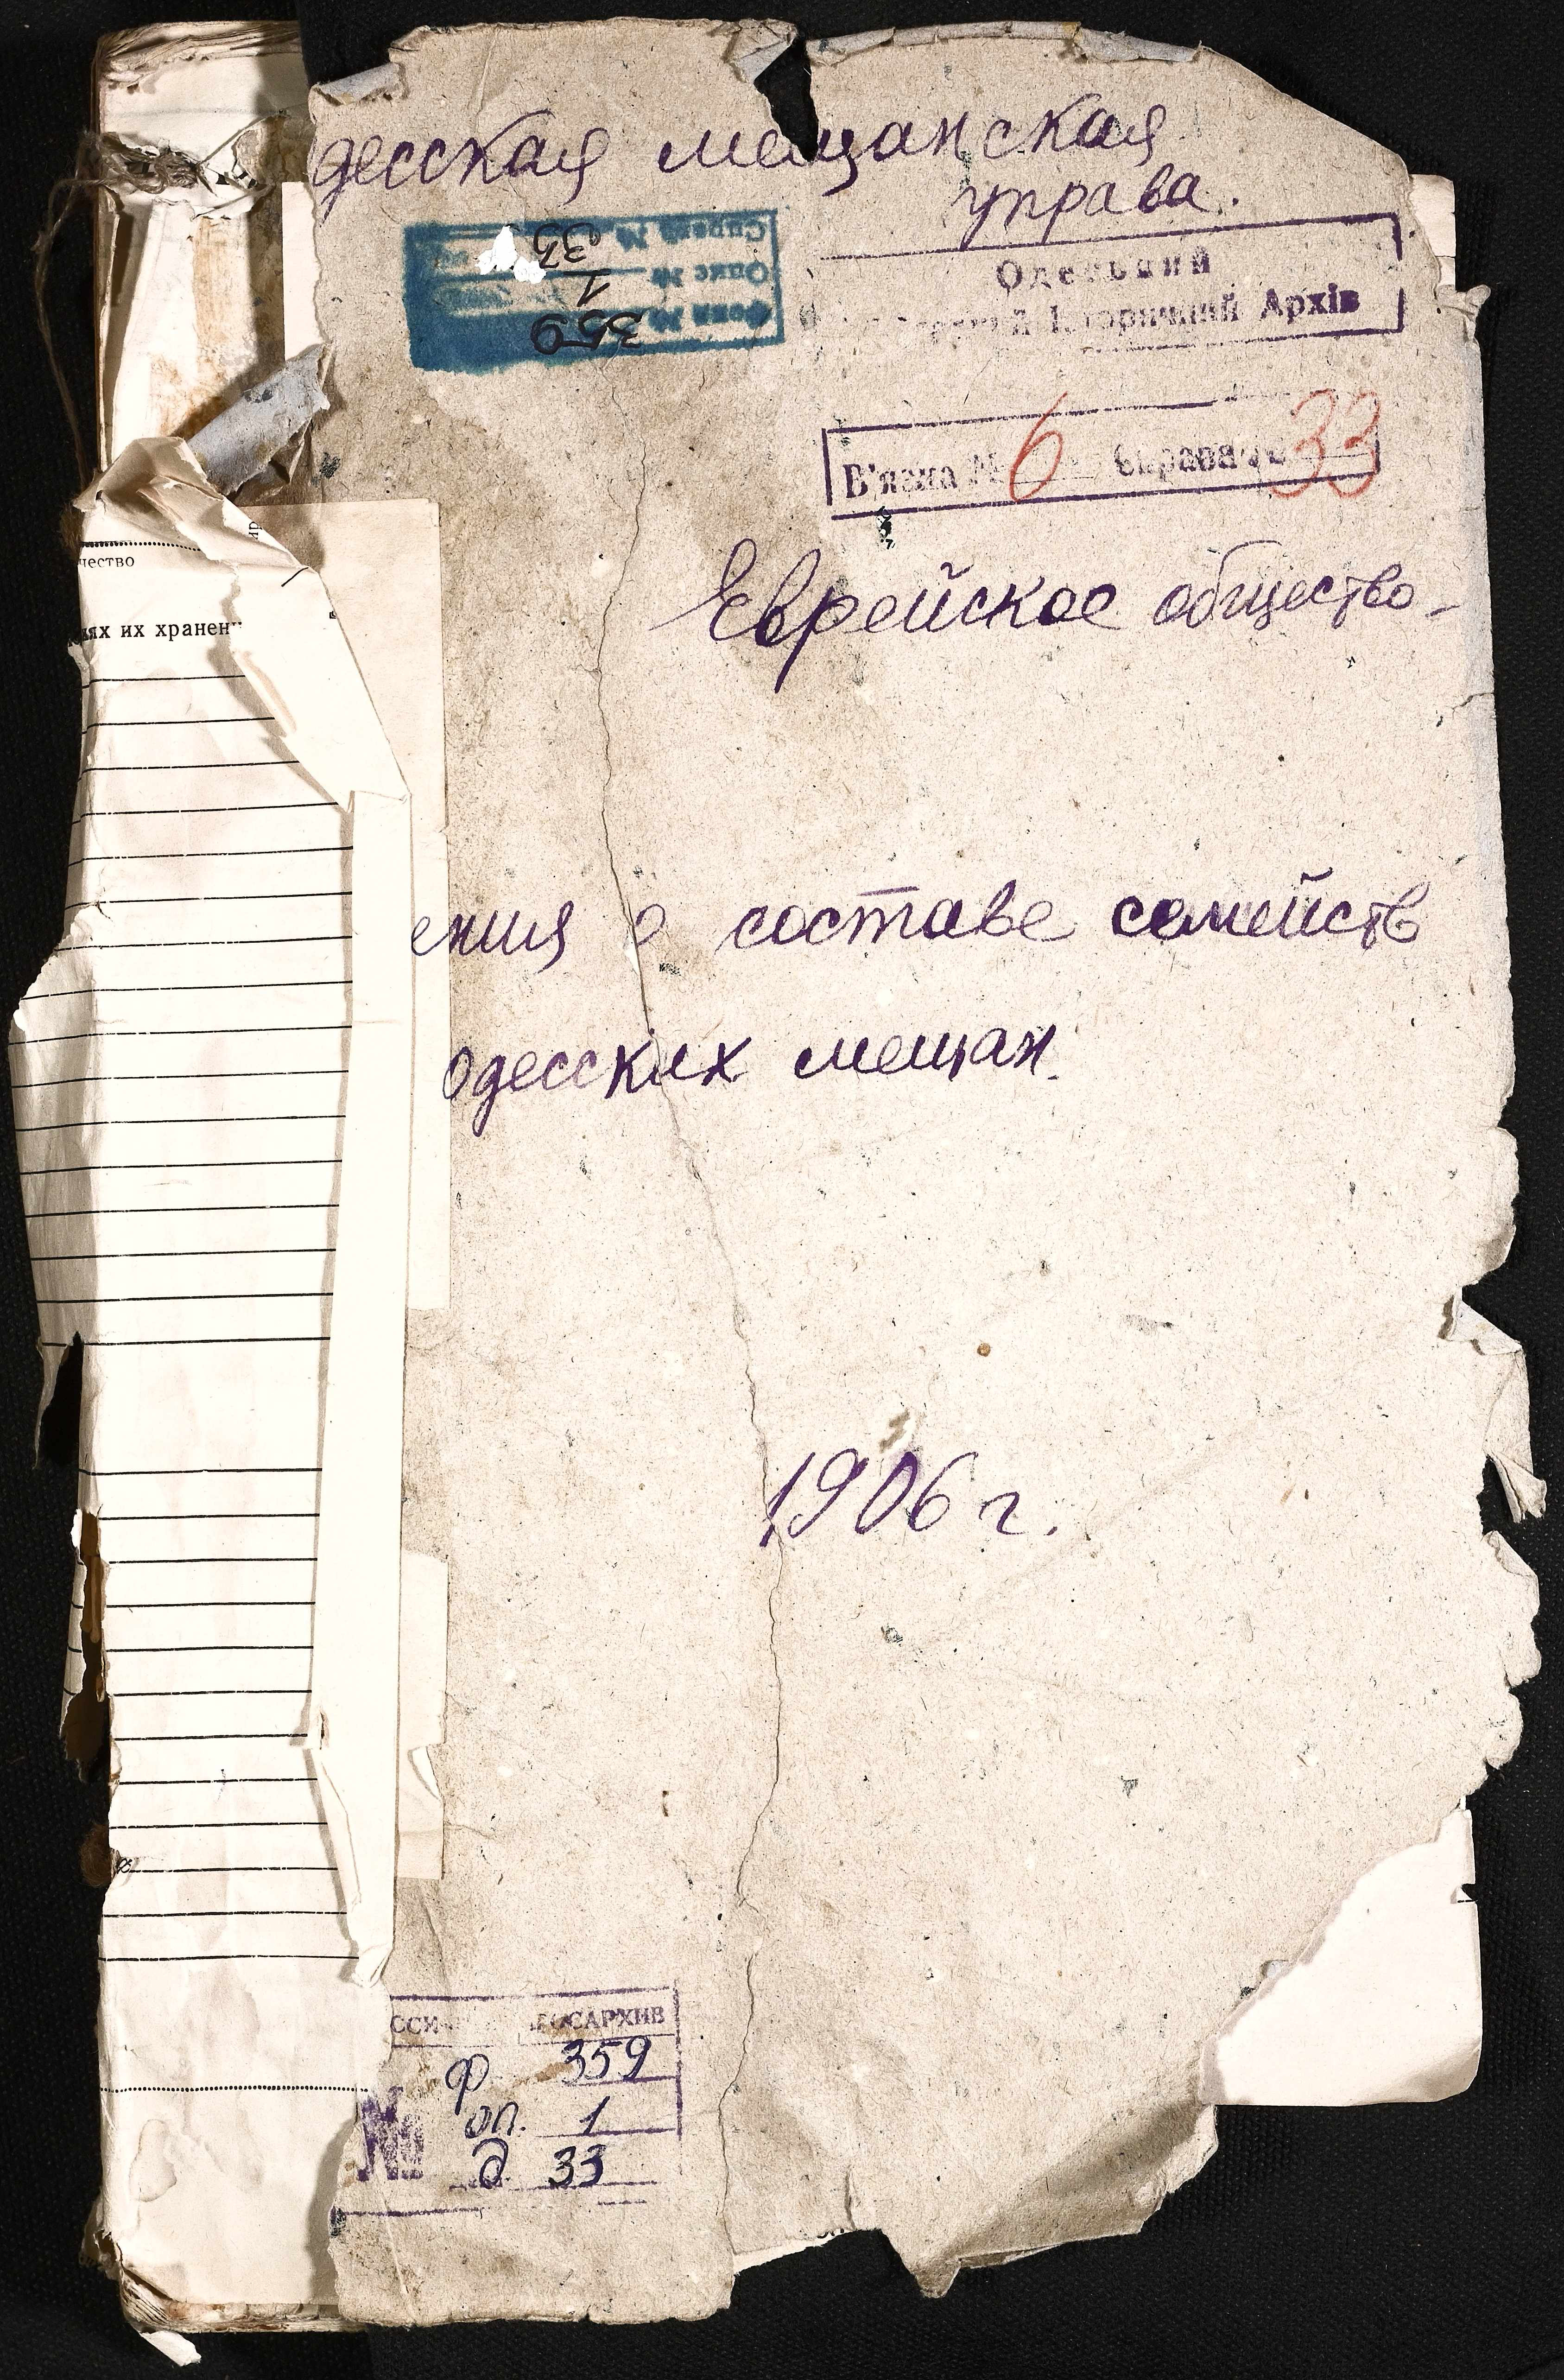 десская мещанская
управа.
Справа № 33
Опис № 1
Фонд № 359
Одеський
Історичний Архів
В'язка № 6 Справа № 33
чество
ях их хранен
Еврейское общество-
ения о составе семейств
одесских мещан.
1906 г.
ОСАРХИВ
ф 359
№ оп. 1
д 33